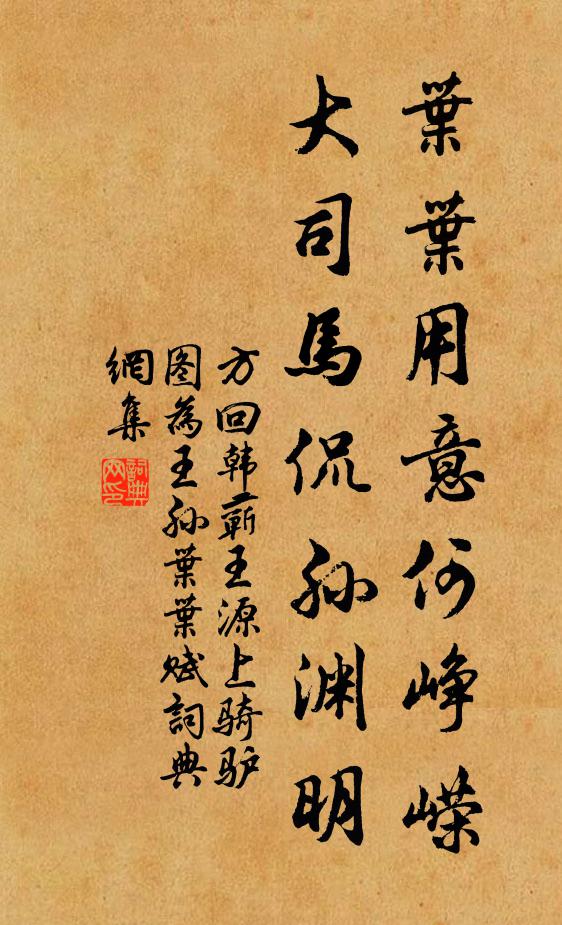 葉葉用意何峥嵘
大司馬侃孙渊明
方回韩蕲王源上骑驴
图為王孙葉葉赋詞典
網集
詞典网印